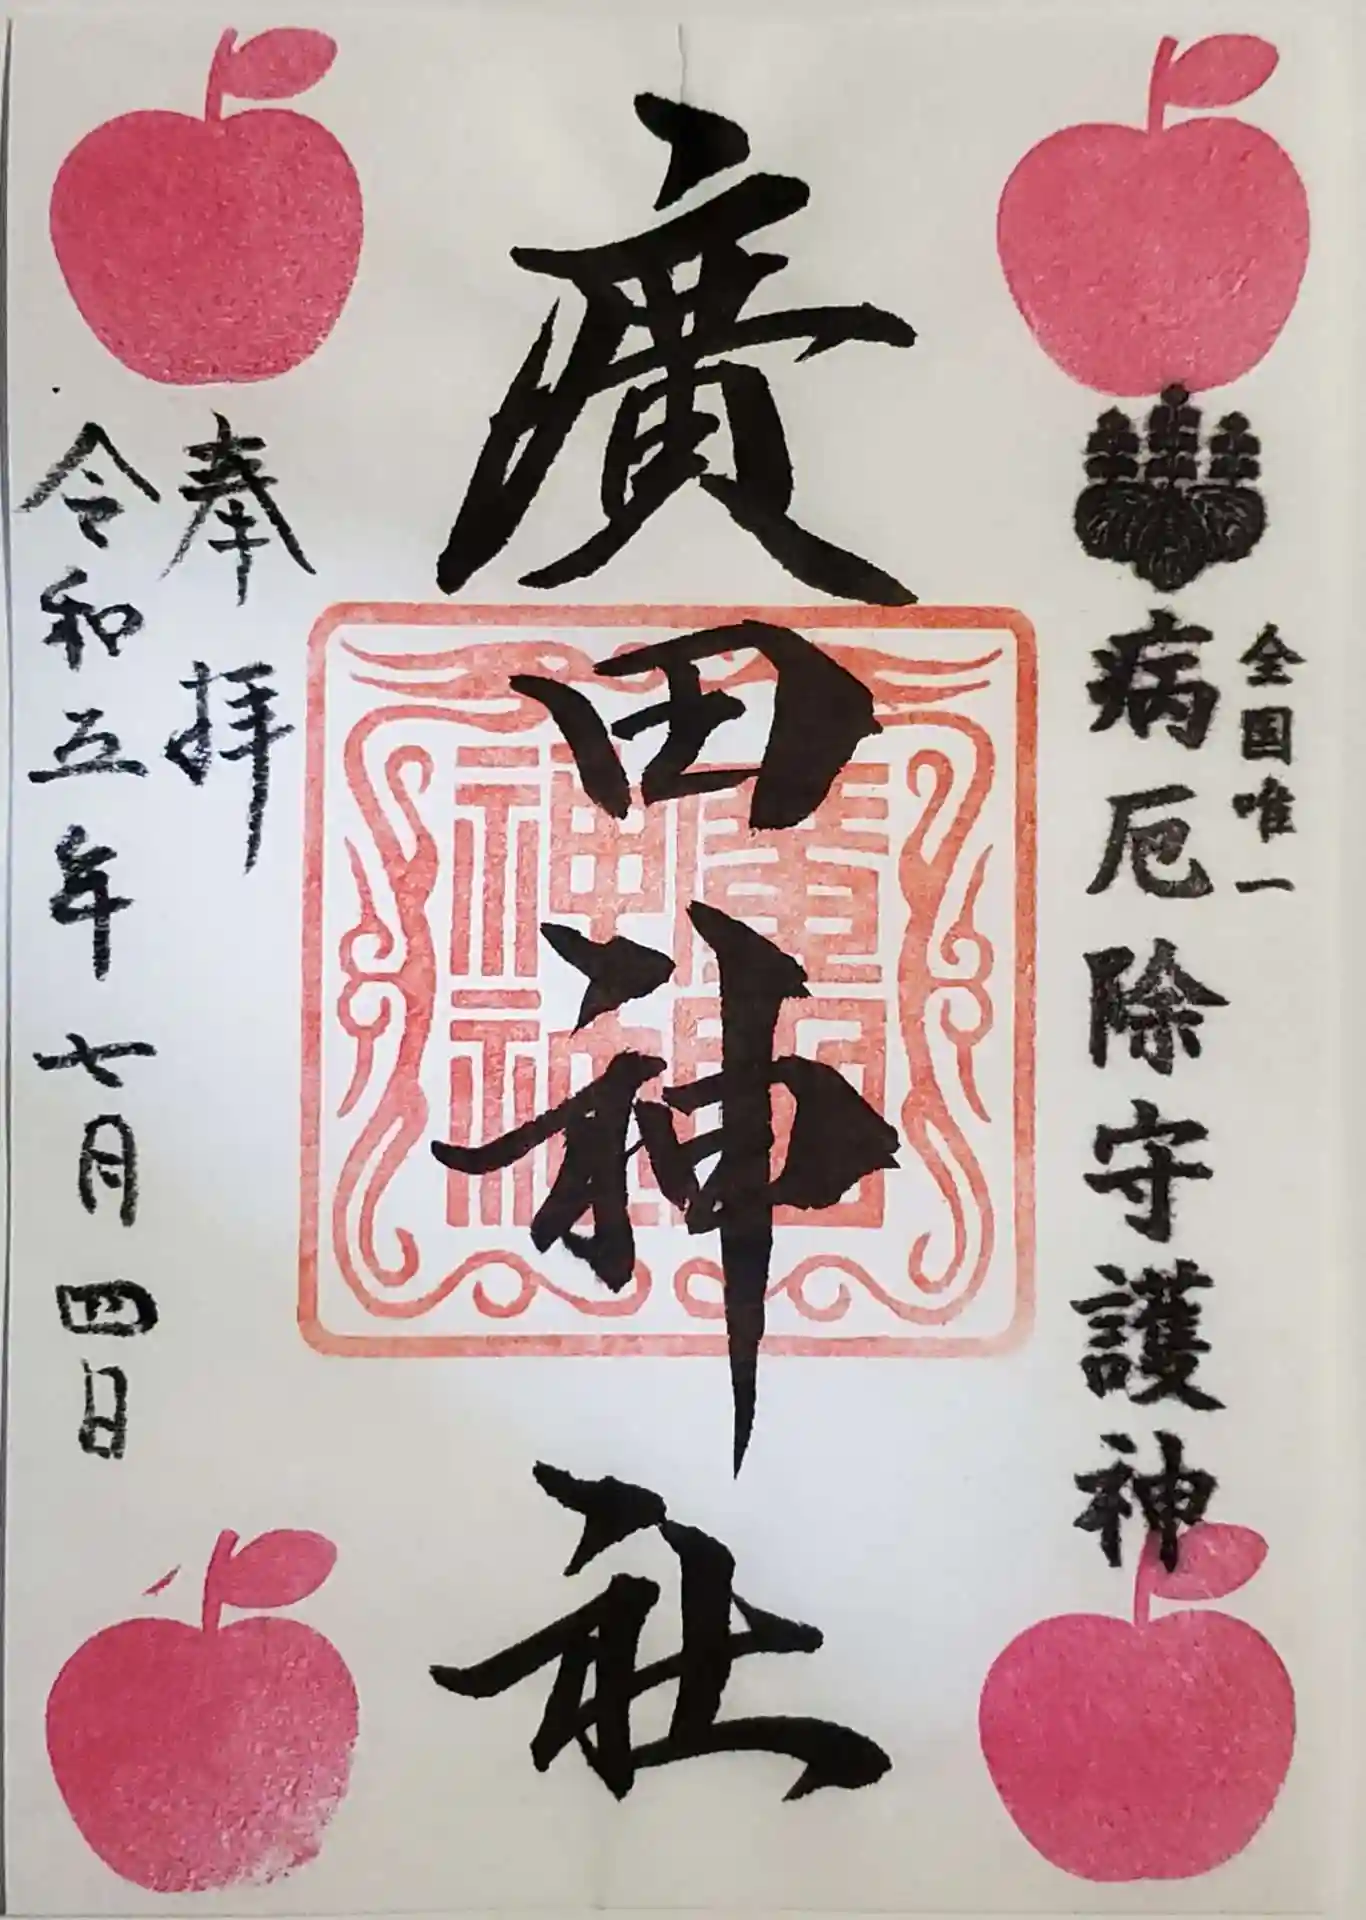 全国唯一
病厄除守護神
廣田神社
廣田神社
奉拝
令和五年七月四日